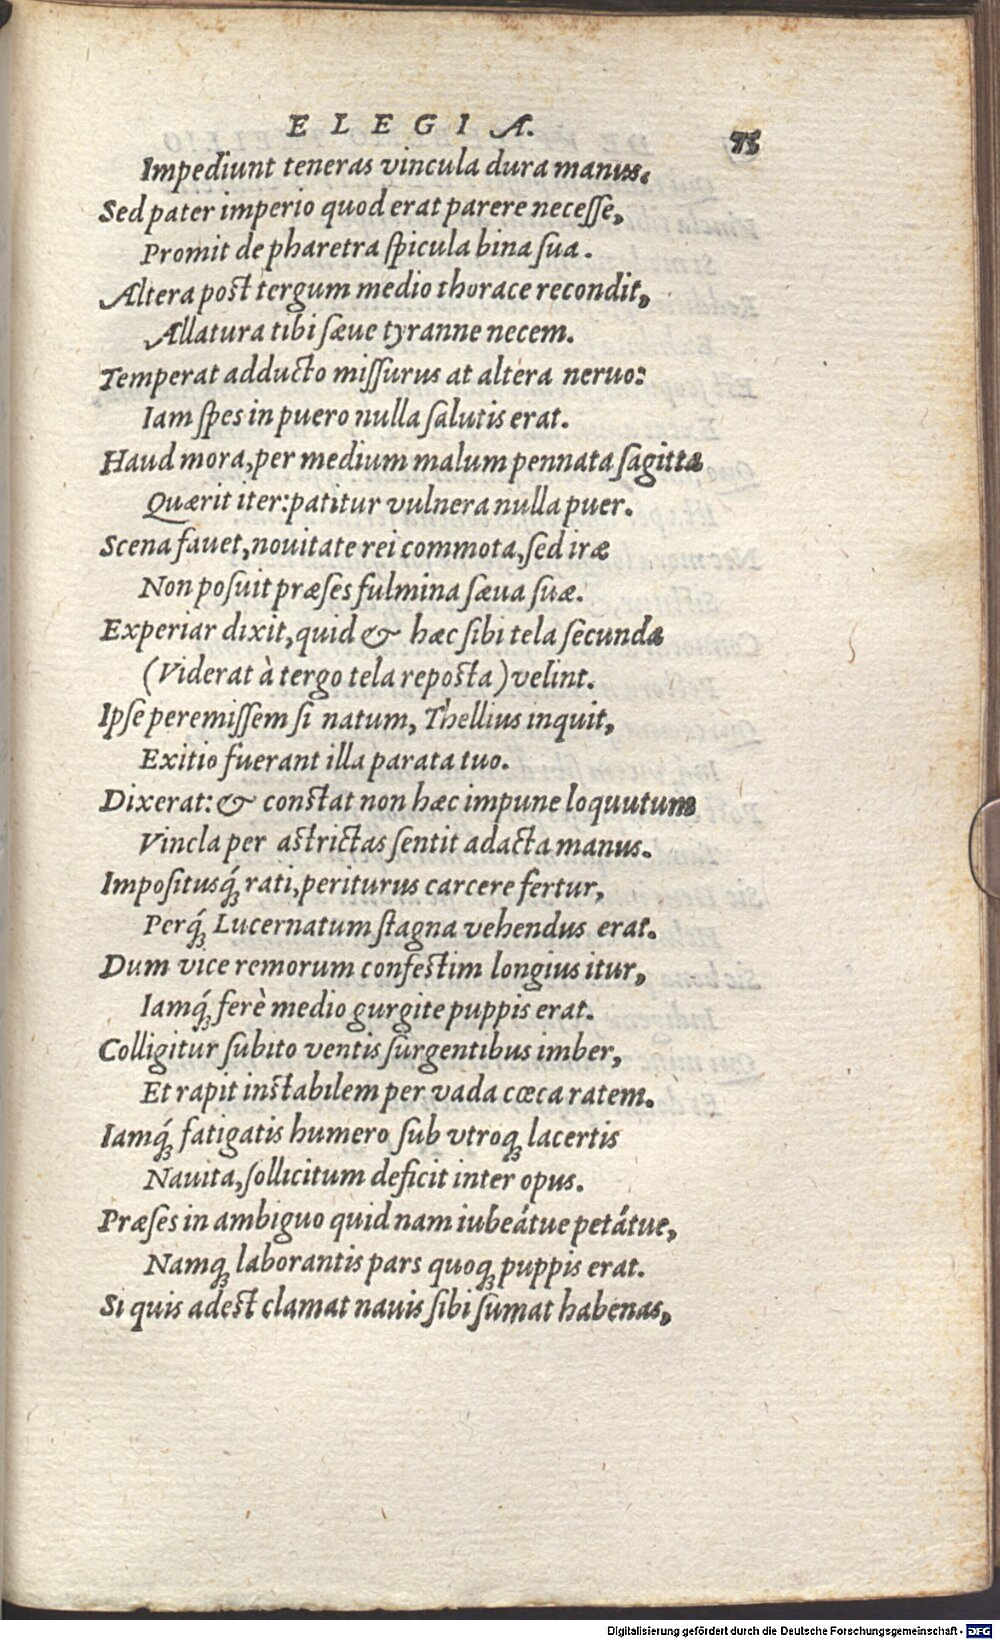 ELEGIA. 75
Impediunt teneras vincula dura manus.
Sed pater imperio quod erat parere necesſe,
Promit de pharetra ſpicula bina ſua.
Altera poſt tergum medio thorace recondit,
Allatura tibi ſæue tyranne necem.
Temperat adducto miſſurus at altera neruo:
Iam ſpes in puero nulla ſalutis erat.
Haud mora, per medium malum pennata ſagitta
Quærit iter: patitur vulnera nulla puer.
Scena fauet, nouitate rei commota, ſed iræ
Non poſuit præſes fulmina ſæua ſuæ.
Experiar dixit, quid & hæc ſibi tela ſecunda
(Viderat à tergo tela repoſta) velint.
Ipſe peremiſſem ſi natum, Thellius inquit,
Exitio fuerant illa parata tuo.
Dixerat: & conſtat non hæc impune loquutum
Vincla per aſtrictas ſentit adacta manus.
Impoſitusq́ꝫ rati, periturus carcere fertur,
Perq́ꝫ Lucernatum ſtagna vehendus erat.
Dum vice remorum confeſtim longius itur,
Iamq́ꝫ ferè medio gurgite puppis erat.
Colligitur ſubito ventis ſurgentibus imber,
Et rapit inſtabilem per vada cœca ratem.
Iamq́ꝫ fatigatis humero ſub vtroqꝫ lacertis
Nauita, ſollicitum deficit inter opus.
Præſes in ambiguo quid nam iubeátue petátue,
Namqꝫ laborantis pars quoqꝫ puppis erat.
Si quis adeſt clamat nauis ſibi ſumat habenas,
Digitalisierung gefördert durch die Deutsche Forschungsgemeinschaft - DFG